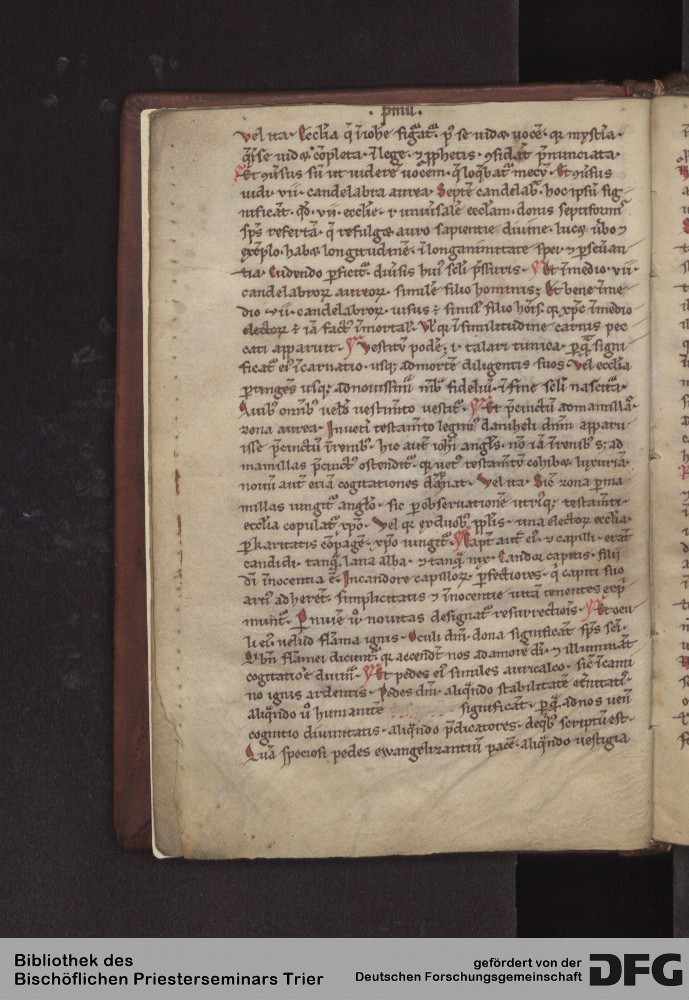 · pmũ ·
vel ita · Ecclia q̃ ĩ iohe figat᷑ · ꝑ se vidꝫ uocẽ · qꝛ mystia ·
q̃ se vidꝫ cõpleta · ĩ lege · ⁊ ꝓphetis · ꝯsidat p̃nunciata ·
Et ꝯuersus sũ ut viderẽ uocem · q̃ loqbat᷑ mecũ · Et ꝯuersus
uidi · vii · candelabra aurea · Septẽ candelab · hoc ipsũ sig
nificat · qd · vii · ecclie · ł uniũsalẽ ecclam · donis septiformis
sp̃s refertã · q̃ refulgꝫ auro sapientie divine · lucꝫ ũbo ⁊
exẽplo · habꝫ longitudinẽ · ĩ longanimitate spei · ⁊ ꝑseuan
tia · Eudendo ꝑficit᷑ · diusis huiꝰ scli p̃ssuris · Et ĩ medio · vii ·
candelabroꝝ aureoꝝ · similẽ filio hominis · Et bene ĩ me
dio · vii · candelabroꝝ · uisus ẽ similꝰ filio hoĩs · qꝛ xp̃c ĩ medio
electoꝝ ẽ iã factꝰ ĩmortal · Vł qꝛ ĩ similitudine carnis pec
cati apparuit · Vestitũ podẽ · i · talari tunica · ꝑ q̃ signi
ficat᷑ eiꝰ ĩcarnatio · usqꝫ ad mortẽ diligentis suos · Vel ecclia
ꝑtinges usqꝫ ad nouissimũ mẽb fideliũ · ĩ fine scli nascitũ ·
Quibꝰ omĩbꝰ uelud vestimto vestit᷑ · Et p̃cinctũ ad mamillas
zona aurea · In ueti testamto legim danihelĩ dñm apparu
isse p̃cinctũ ĩ renibꝰ · hic aut iohi angls · nõ iã ĩ renibꝰ sꝫ ad
mamillas p̃cinctꝰ ostendit᷑ · qꝛ uetꝰ testamtũ cohibꝫ luxuriã ·
nouũ aut etiã cogitationes dãpnat · Vel ita · Sic zona ꝑ ma
millas iungit᷑ anglo · sic ꝑ obseruationẽ utriusqꝫ testamti ·
ecclia copulat᷑ xp̃o · Vel qꝛ ex duobꝰ pplis · una electoꝝ ecclia ·
ꝑ karitatis cõpagẽ · xp̃o iungit᷑ · Capt aut eiꝰ ⁊ capilli · erãt
candidi · tanq̃ lana alba · ⁊ tanq̃ nix · Candor capitis · filii
di ĩnocentia ẽ · In candore capilloꝝ · ꝑfectiores · q̃ capiti suo
artiꝰ adherẽt · simplicitatis ⁊ ĩnocentie uitã tenentes exp̃
munt᷑ · Per niuẽ ũ nouitas designat᷑ resurrectiõis · Et ocu
li eiꝰ uelud flãma ignis · Oculi dñi · dona significãt sp̃s sci ·
Q bñ flãmei dicunt᷑ · qꝛ accendũt nos ad amorẽ di · ⁊ illuminãt
cogitatiõe diuinã · Et pedes eiꝰ similes auricalco · sic ĩ cami
no ignis ardentis · Pedes dñi · aliqñdo stabilitatẽ eternitatis ·
aliqñdo ũ humanitẽ significãt · ꝑ q̃ ad nos uenit
cognitio diuinitatis · aliqñdo p̃dicatores · de qbꝰ scriptũ est ·
Quã speciosi pedes ewangelizantiũ pacẽ · aliqñdo uestigia
Bibliothek des
Bischöflichen Priesterseminars Trier
gefördert von der
Deutschen Forschungsgemeinschaft
DFG